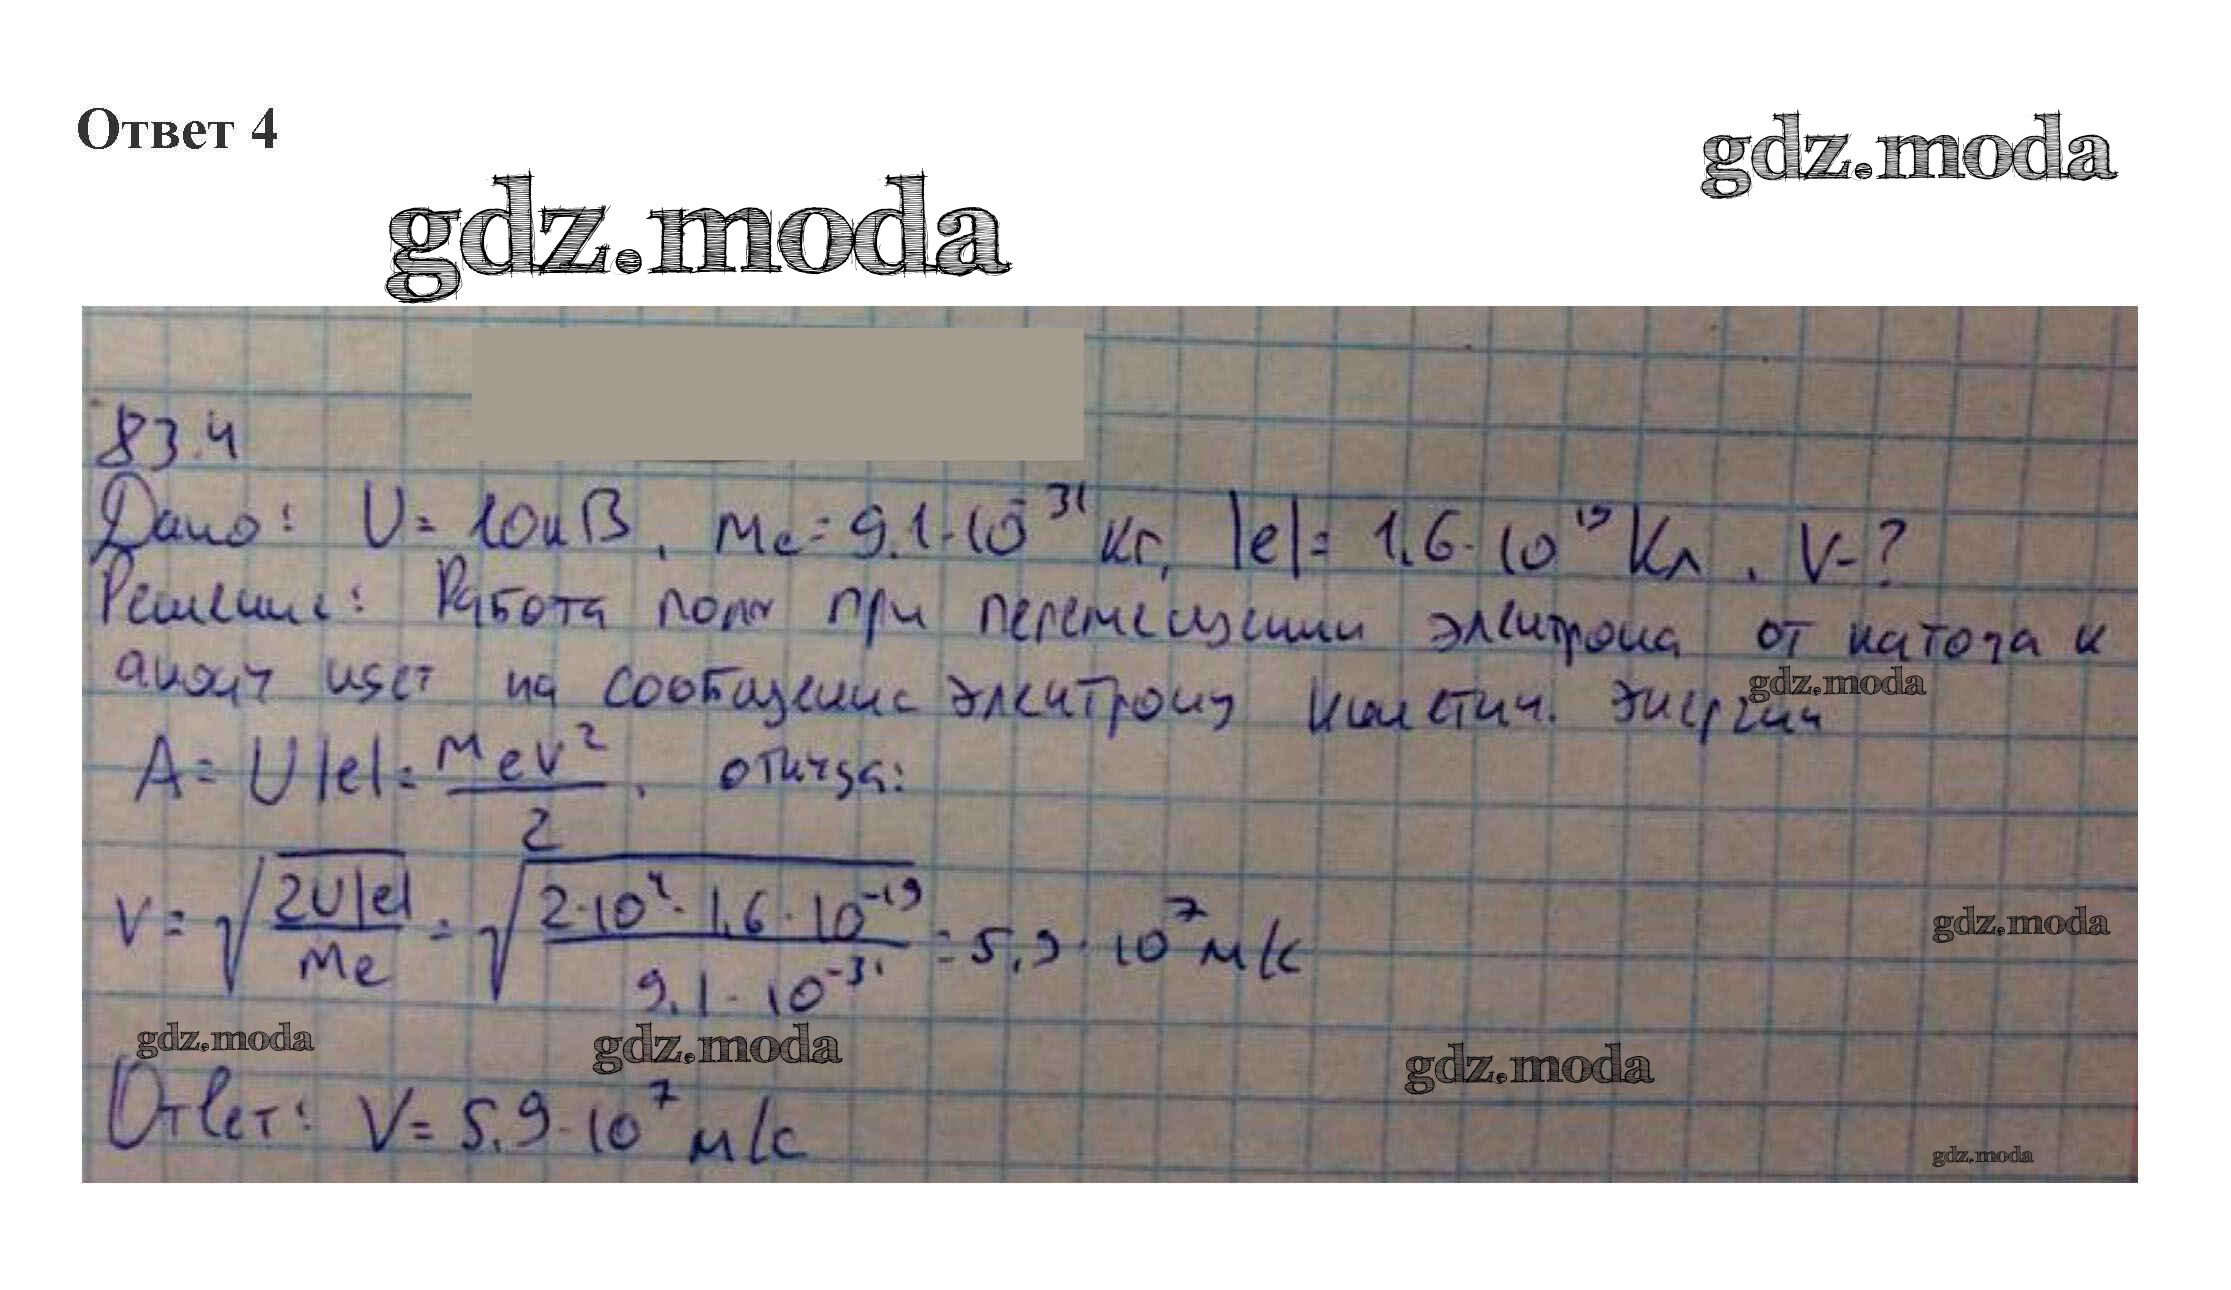 Ответ 4
gdz.moda
gdz.moda
83.4
Дано: U = 10кВ, me = 9.1·10^-31 кг, |e| = 1.6·10^19 Кл. V-?
Решение: Работа поля при перемещении электрона от катода к
gdz.moda
аноду идет на сообщение электрону кинетич. энергии
A = U|e| = mev²/2, откуда:
V = √(2U|e|/me) = √(2·10^4·1.6·10^-19/9.1·10^-31) = 5.9·10^7 м/с
gdz.moda
gdz.moda
gdz.moda
gdz.moda
Ответ: V = 5.9·10^7 м/с
gdz.moda